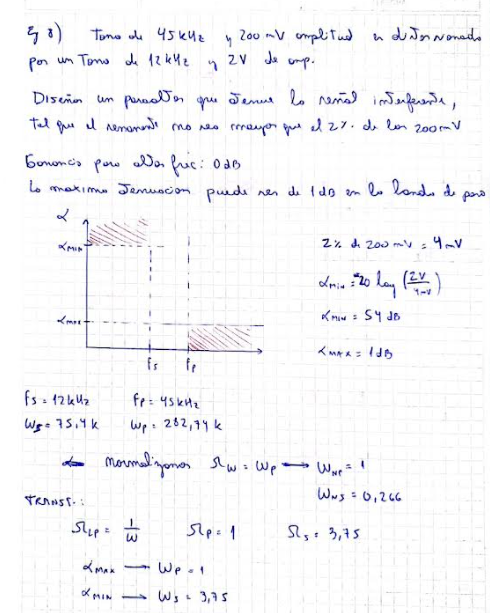 Ej 8) Tono de 45 kHz y 200 mV amplitud es distorsionado
por un Tono de 12 kHz y 2V de amp.
Diseñar un pasaaltos que atenue la señal interferente,
tal que el remanente no sea mayor que el 2%. de los 200 mV
Ganancia para altas frec: 0 dB
La maxima atenuacion puede ser de 1 dB en la banda de paso
α
αMIN
αMAX
fs fp
2% de 200 mV = 4 mV
αMIN = 20 log (2V/4mV)
αMIN = 54 dB
αMAX = 1 dB
fs = 12 kHz fp = 45 kHz
Ws = 75,4 k Wp = 282,74 k
normalizamos ΩW = Wp → WNP = 1
WNS = 0,266
TRANSF.:
ΩLP = 1/W Ωp = 1 Ωs = 3,75
αMAX → Wp = 1
αMIN → Ws = 3,75